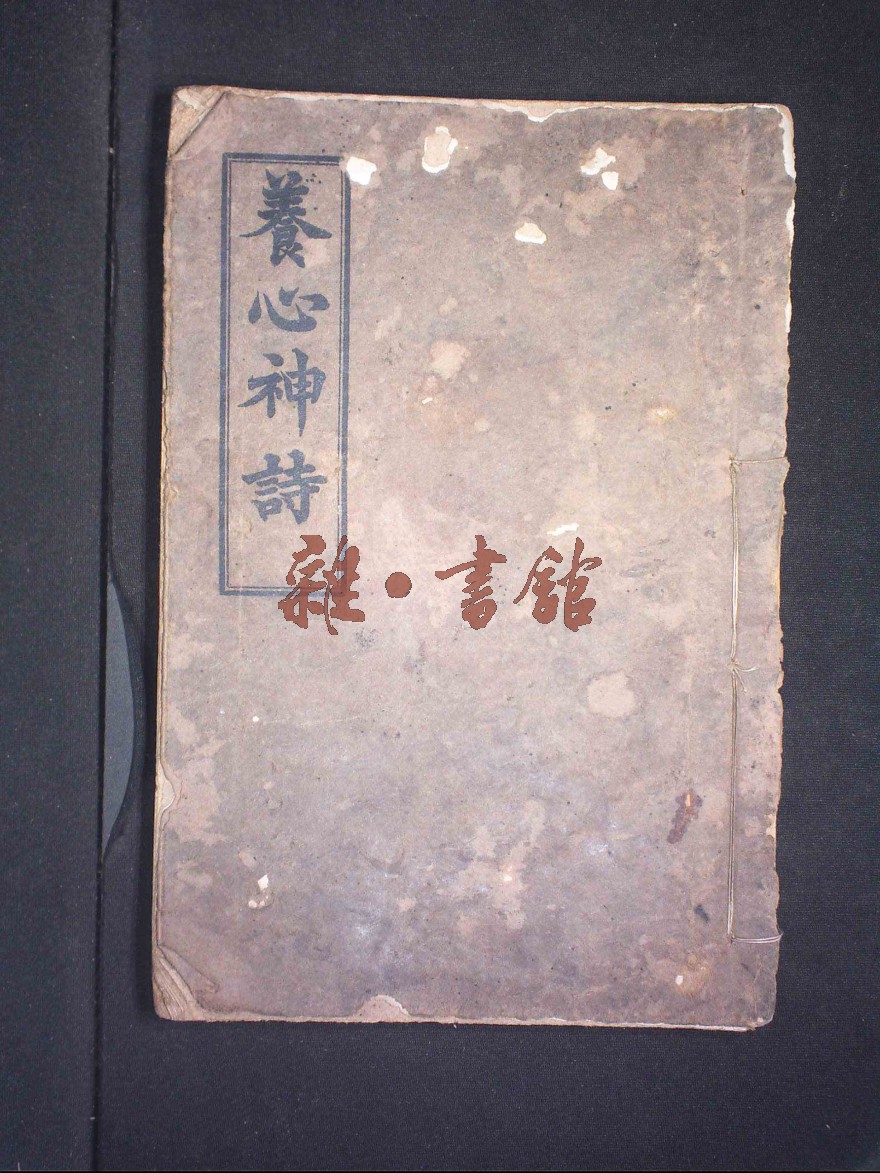 養心神詩
雜·書館